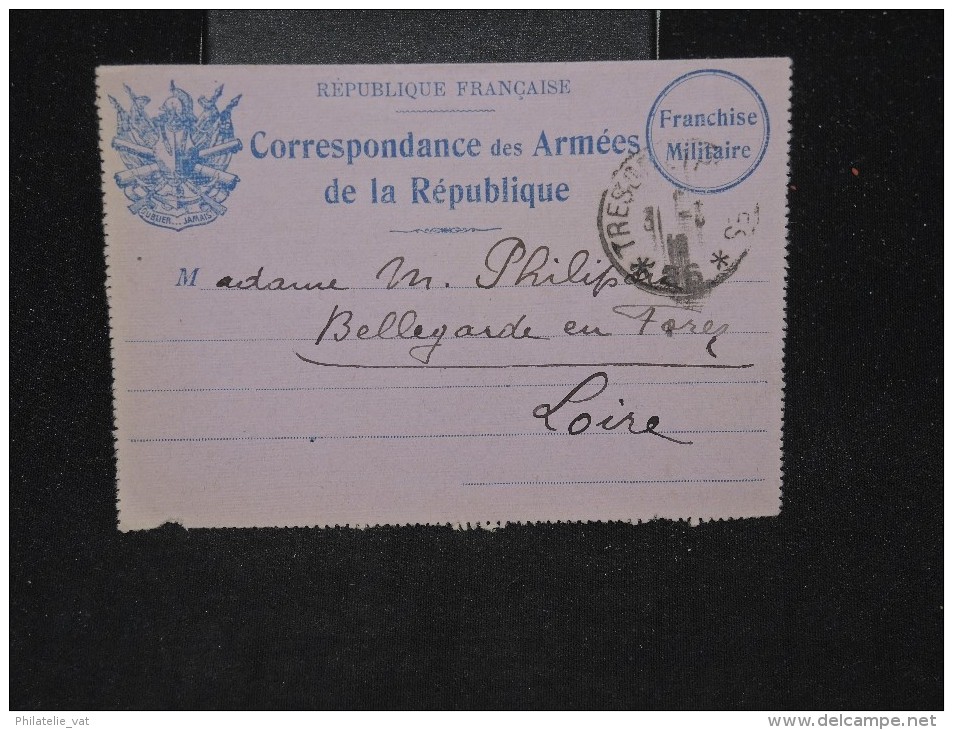 RÉPUBLIQUE FRANÇAISE
Correspondance des Armées
de la République
Franchise
Militaire
OUBLIER... JAMAIS
TRESOR
* 26 *
Madame M. Philip
Bellegarde en Forez
Loire
Philatelie_vat
http://www.delcampe.net